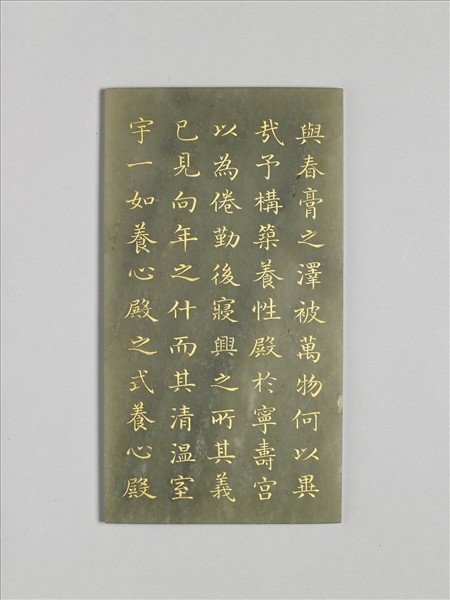 與春膏之澤被萬物何以異
哉予構築養性殿於寧壽宫
以為倦勤後寢興之所其義
已見向年之什而其清温室
宇一如養心殿之式養心殿